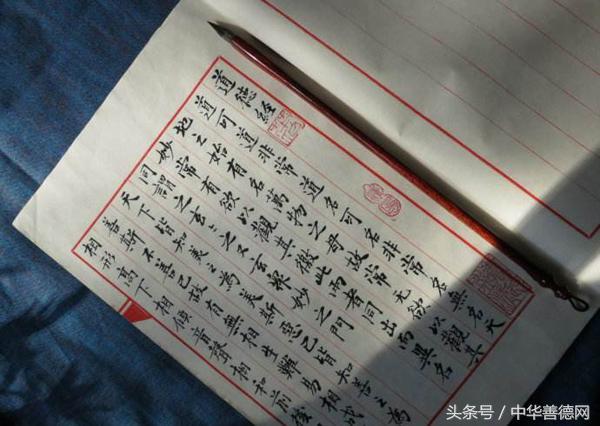 道德經
道可道非常道名可名非常名無名天
地之始有名萬物之母故常无欲以觀其
妙常有欲以觀其徼此兩者同出而異名
同謂之玄〻之又玄眾妙之門
天下皆知美之為美斯惡已皆知善之為
善斯不善已故有無相生難易相成
相形高下相傾音聲相和前後
头条号／中华善德网